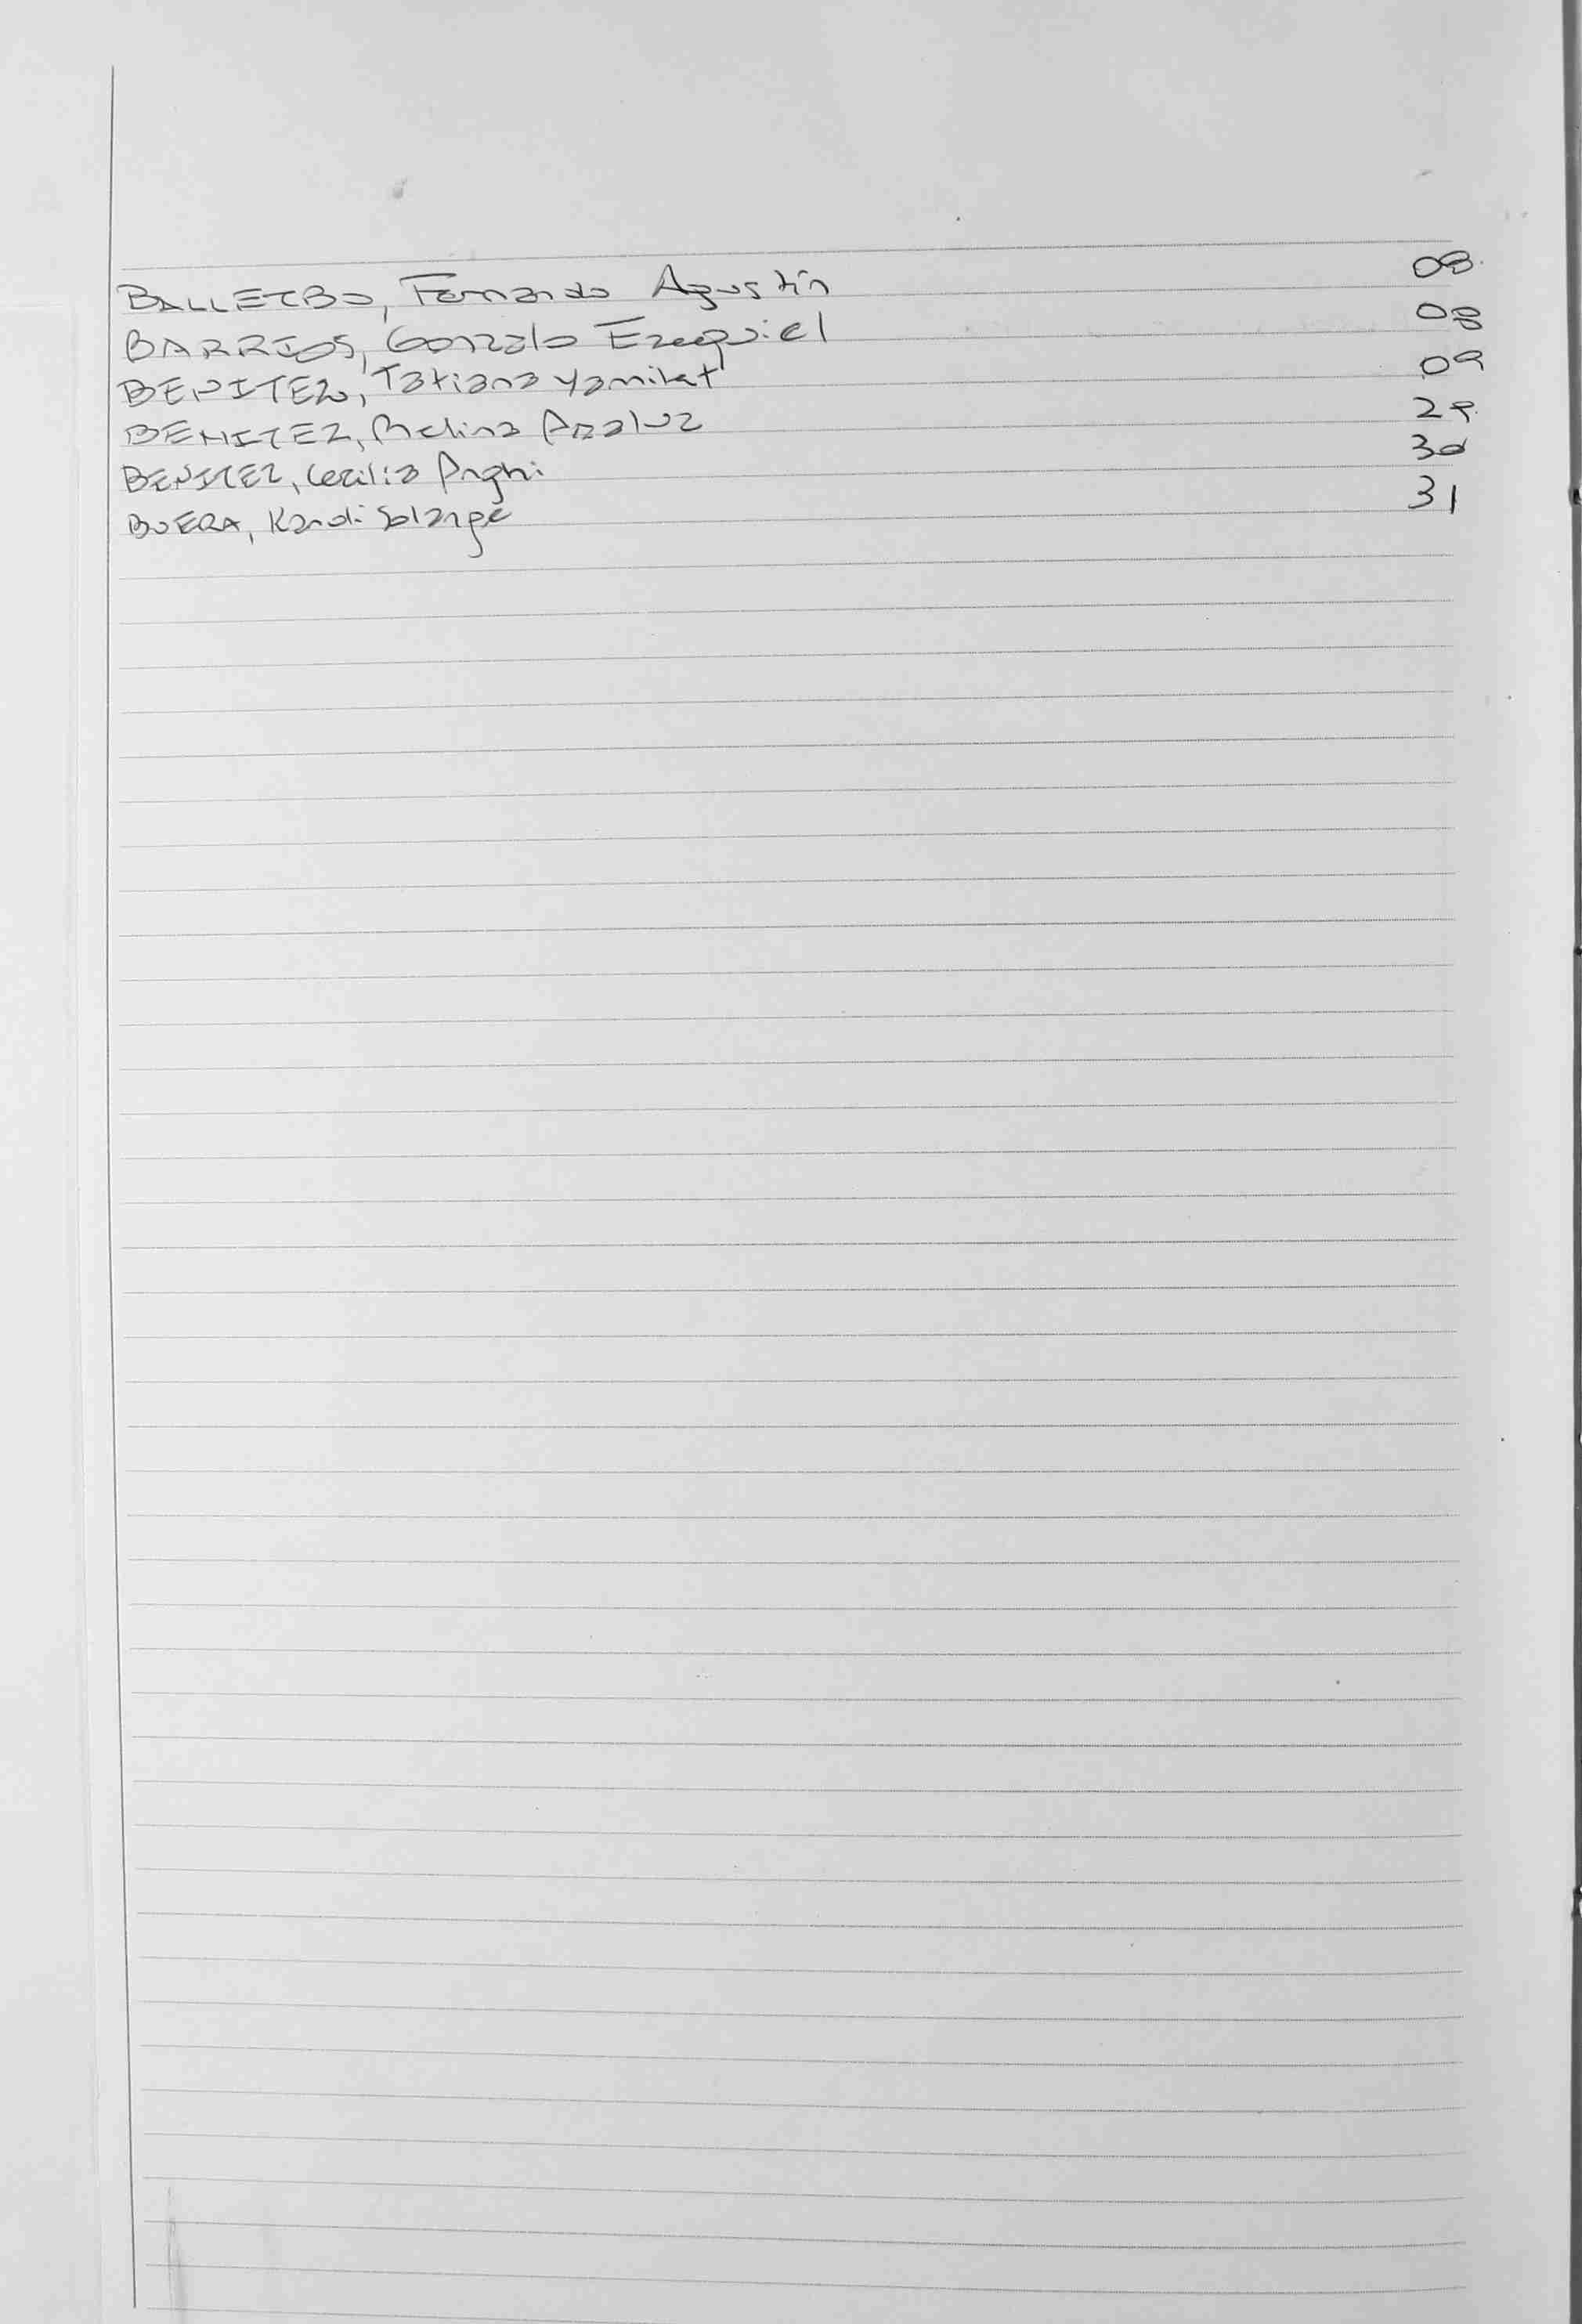 BALLEIBO, Fernando Agustín 08
BARRIOS, Gonzalo Ezequiel 08
BENITEZ, Tatiana Yamilet 09
BENITEZ, Melina Analuz 29
BENITEZ, Cecilia 30
BUERA, Kandi Solange 31